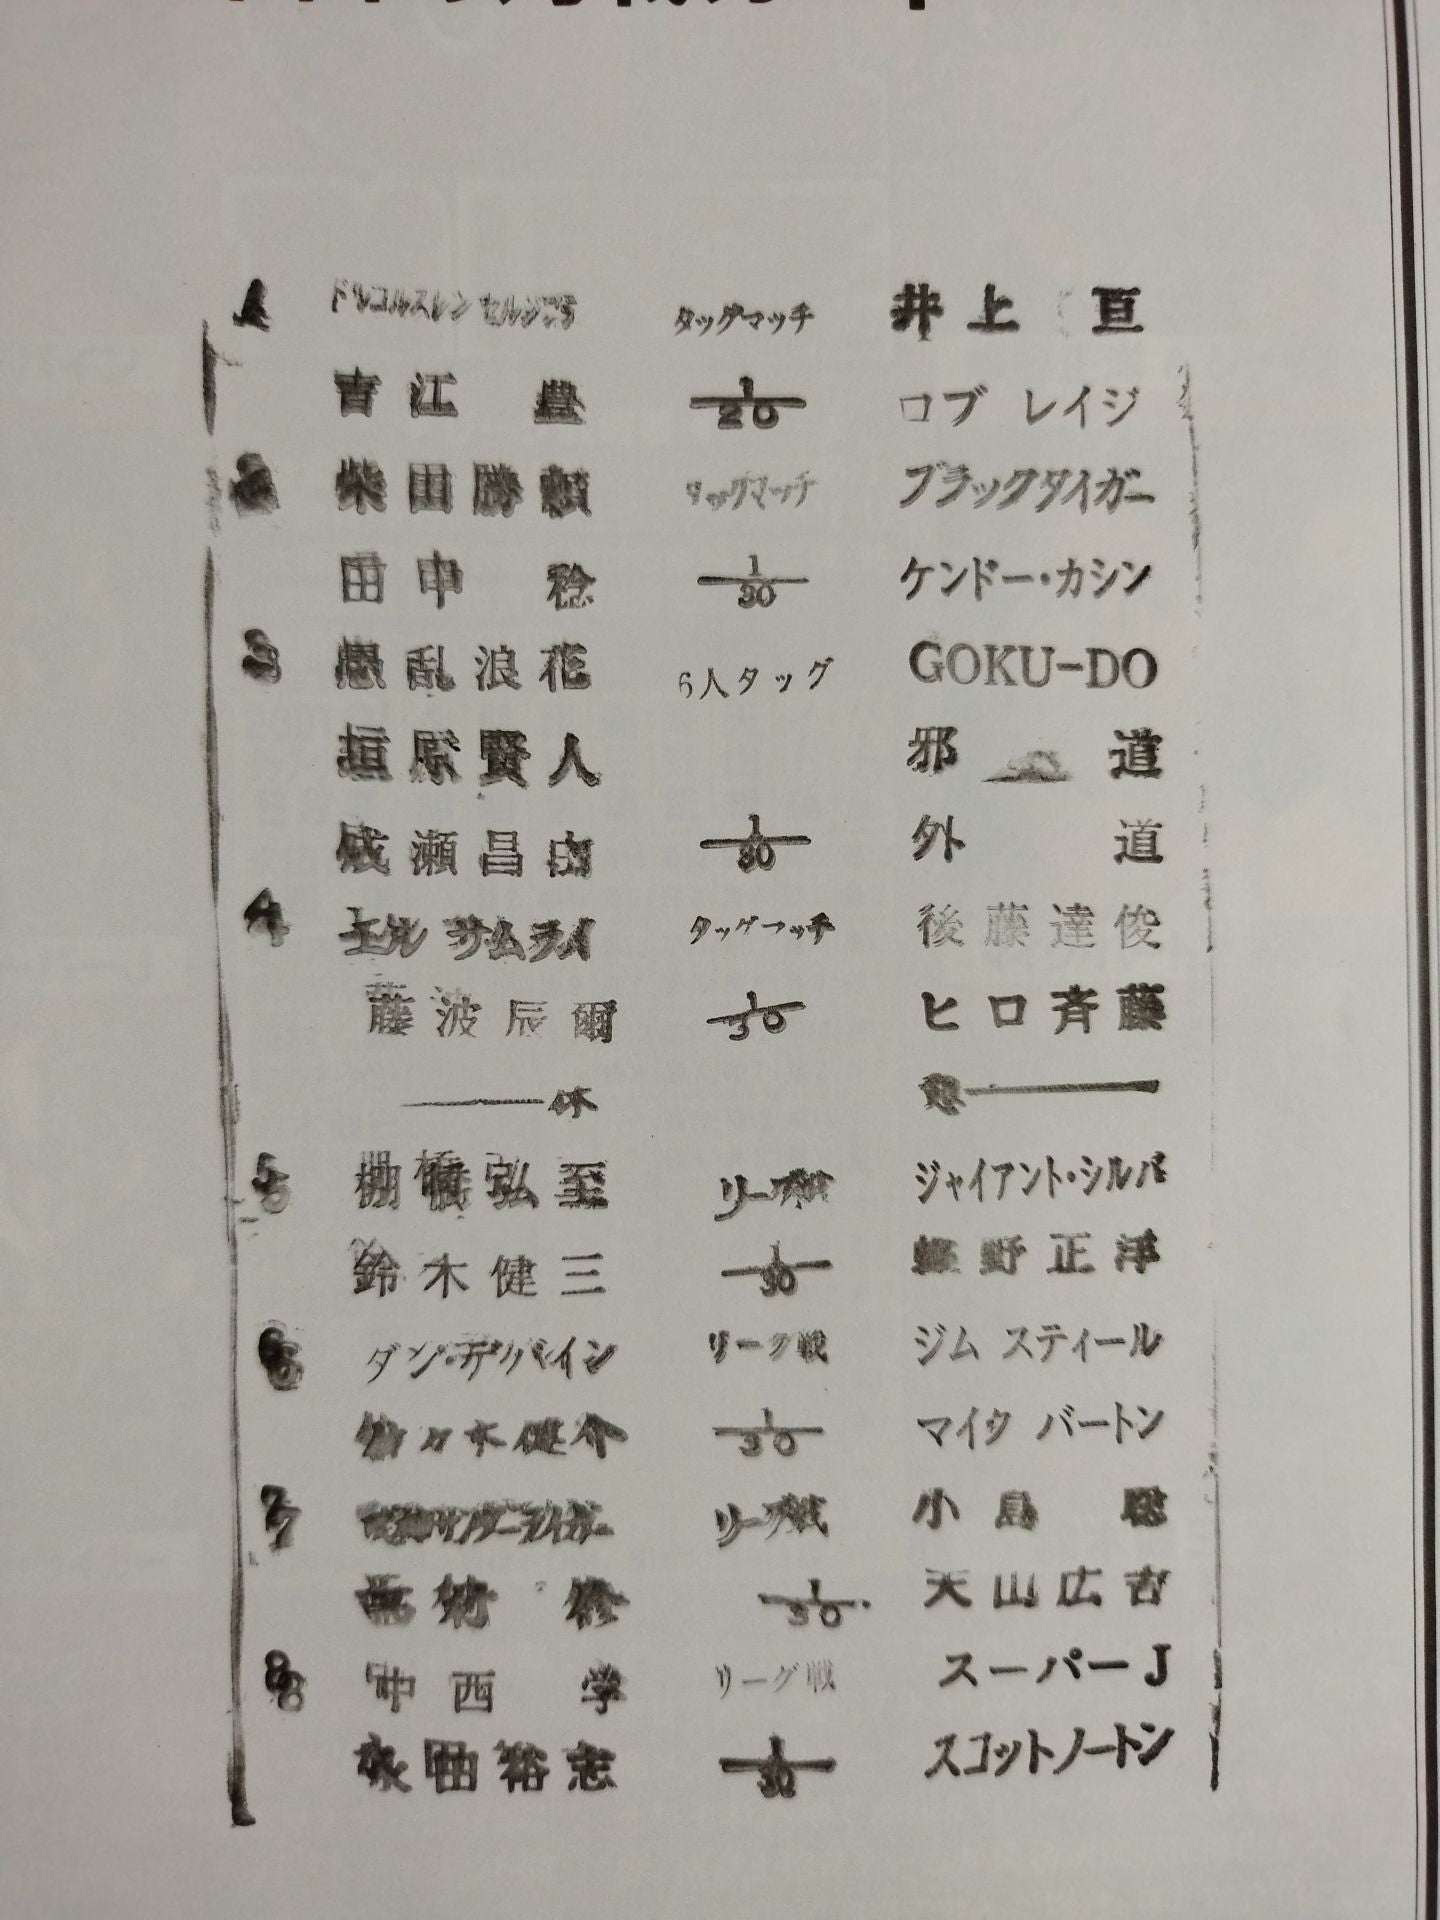 1 ドルゴルスレン セルジブデ タッグマッチ 井上 亘
吉江 豊 1/20 ロブ レイジ
2 柴田勝頼 タッグマッチ ブラックタイガー
田中 稔 1/30 ケンドー・カシン
3 愚乱浪花 6人タッグ GOKU-DO
垣原賢人 邪道
成瀬昌由 1/30 外道
4 エル サムライ タッグマッチ 後藤達俊
藤波辰爾 1/30 ヒロ斉藤
休 憩
5 棚橋弘至 リーグ戦 ジャイアント・シルバ
鈴木健三 1/30 蝶野正洋
6 ダン・デバイン リーグ戦 ジム スティール
佐々木健介 1/30 マイク バートン
7 獣神サンダーライガー リーグ戦 小島 聡
安田 修 1/30 天山広吉
8 中西 学 リーグ戦 スーパーJ
永田裕志 1/30 スコットノートン